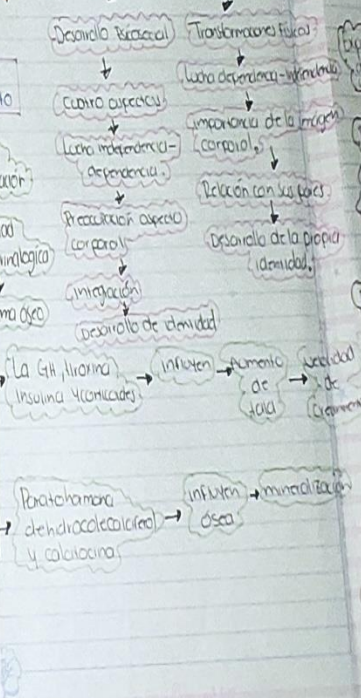 Desarrollo Psicosocial
Cuatro aspectos
Lucha independencia-
dependencia.
Preocupación aspecto
corporal
Integración
Desarrollo de identidad
Transformaciones Físicas
Lucha dependencia-
Importancia de la Imagen
corporal.
Relación con sus pares
Desarrollo de la propia
identidad.
ma óseo
La GH, tiroxina
Insulina y corticoides
Influyen
Aumento
de
talla
velocidad
de
Parathormona
dehidrocolecalciferol
y calcitocina
influyen
ósea
mineralización